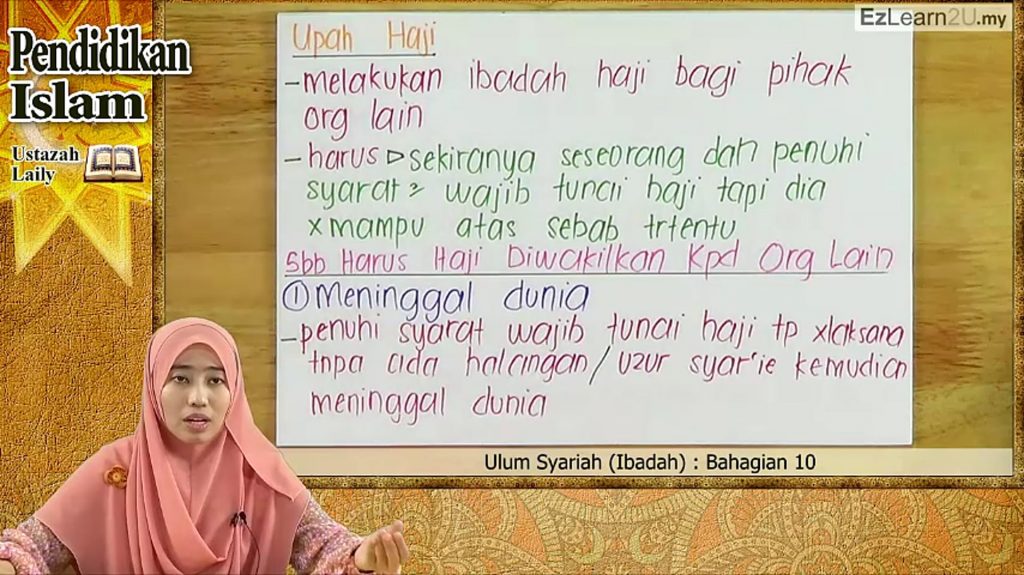 EzLearn2U.my
Pendidikan
Islam
Ustazah
Laily
Upah Haji
- melakukan ibadah haji bagi pihak
org lain
- harus ▷ sekiranya seseorang dah penuhi
syarat² wajib tunai haji tapi dia
x mampu atas sebab trtentu
Sbb Harus Haji Diwakilkan Kpd Org Lain
① Meninggal dunia
- penuhi syarat wajib tunai haji tp xlaksana
tnpa ada halangan / uzur syar'ie kemudian
meninggal dunia
Ulum Syariah (Ibadah) : Bahagian 10